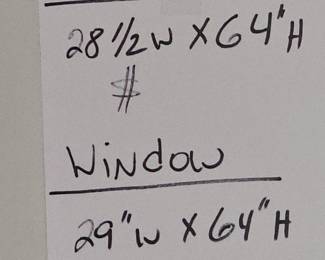 28 1/2 W X 64" H
#
Window
29" W X 64" H